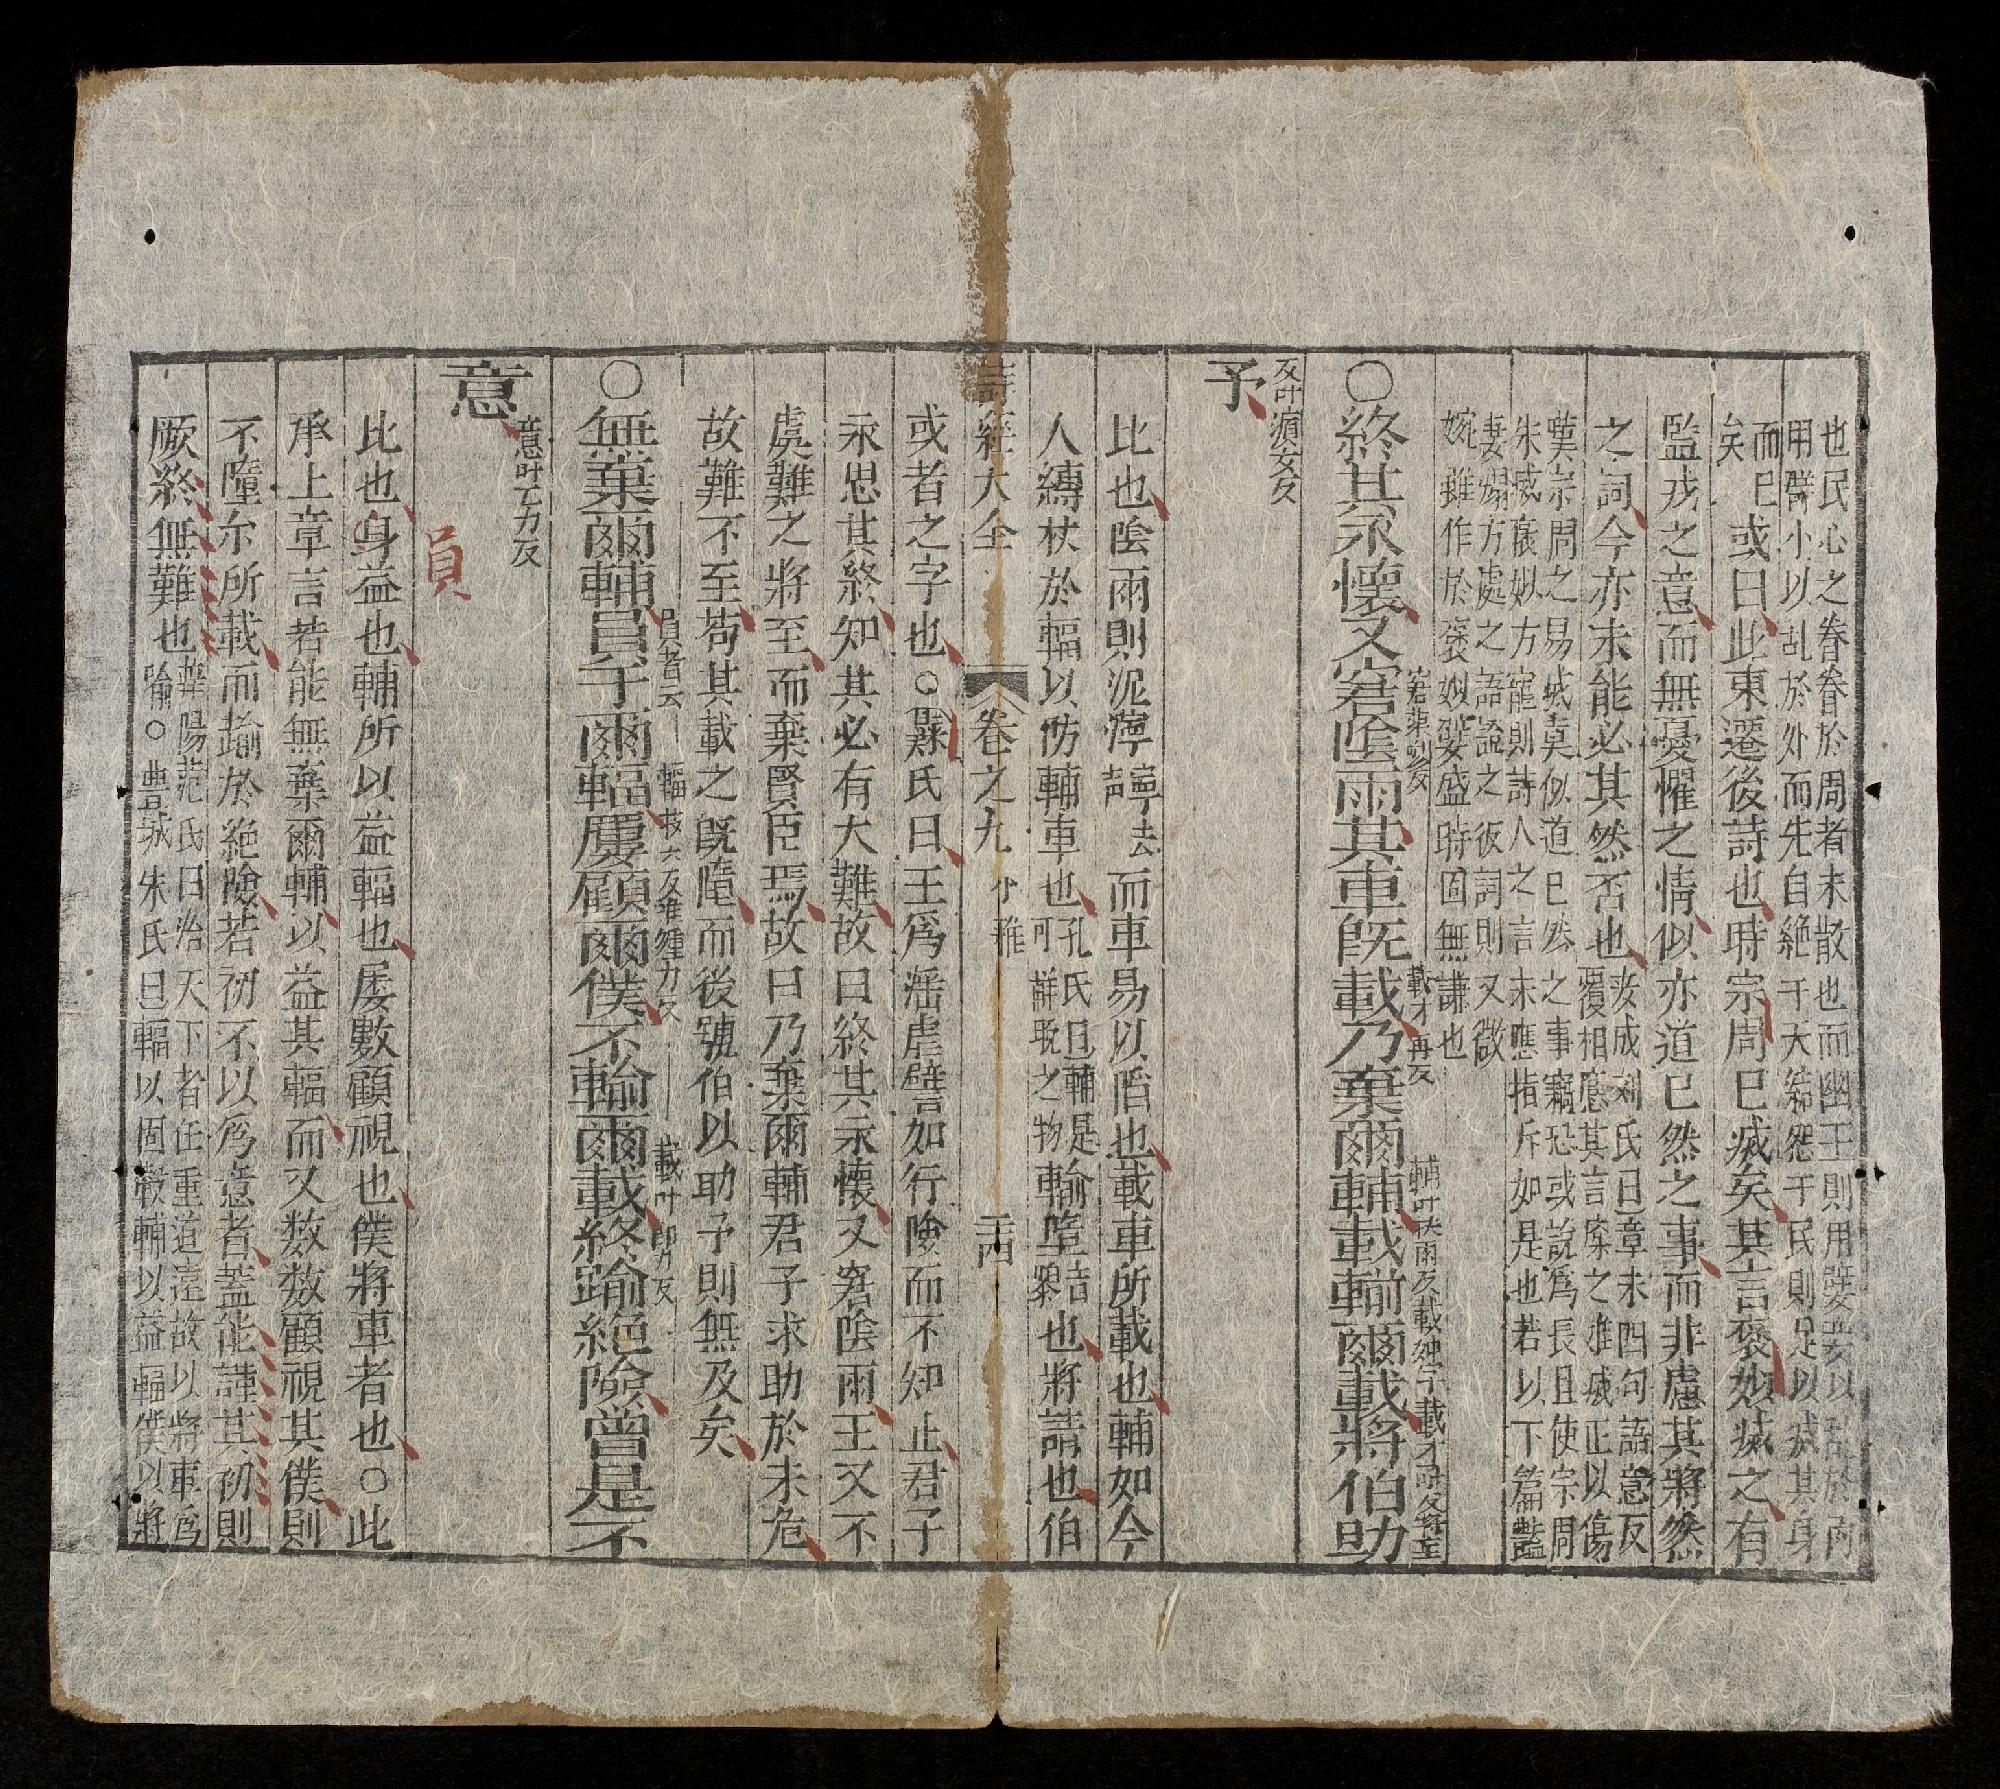 也民心之眷眷於周者未散也而幽王則用嬖妾以乱於内
用群小以乱於外而先自絶于天結怨于民則足以滅其身
而已
矣 或曰此東遷後詩也時宗周已滅矣其言褒姒滅之有
監戎之意而無憂懼之情似亦道已然之事而非慮其將然
之詞今亦未能必其然否也
安成刘氏曰章末四句語意反
覆相應其言寀之难滅正以傷
嘆宗周之易滅莫似道已然之事竊恐或說為長且使宗周
未滅褒姒方寵則詩人之言未應指斥如是也若以下篇豔
妻煽方處之語證之彼詞則又微
婉雖作於褒姒嬖盛時固無謙也
○終其永懷又窘陰雨其車既載乃棄爾輔載輸爾載將伯助
窘葉<br>
載才再反
反叶演女反
予
比也陰雨則泥濘濘去聲而車易以陷也載車所載也輔如今
人縛杖於輻以防輔車也
孔氏曰輔是
可觧脱之物
輸墮音隳也將請也伯
詩經大全 卷之九 小雅 二四
或者之字也○蘇氏曰王為淫虐譬如行險而不知止君子
永思其終知其必有大難故曰終其永懷又窘陰雨王又不
虞難之將至而棄賢臣焉故曰乃棄爾輔君子求助於未危
故難不至苟其載之既墮而後號伯以助予則無及矣
○無棄爾輔員于爾輻屢顧爾僕不輸爾載終踰絶險曾是不
員音云
載叶節力反
意叶乙力反
意
員
比也員益也輔所以益輻也屢數顧視也僕將車者也○此
承上章言若能無棄爾輔以益其輻而又数数顧視其僕則
不墮尓所載而踰於絶險若初不以為意者蓋能謹其初則
厥終無難也
華陽范氏曰治天下者任重道遠故以將車為
喻○豊城朱氏曰輻以固轂輔以益輻僕以將